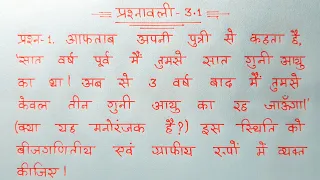 प्रश्नावली - 3.1
प्रश्न-1. आफताब अपनी पुत्री से कहता है,
'सात वर्ष पूर्व मैं तुमसे सात गुनी आयु
का था। अब से 3 वर्ष बाद मैं तुमसे
केवल तीन गुनी आयु का रह जाऊँगा।'
(क्या यह मनोरंजक है?) इस स्थिति को
बीजगणितीय एवं ग्राफीय रूपों में व्यक्त
कीजिए।